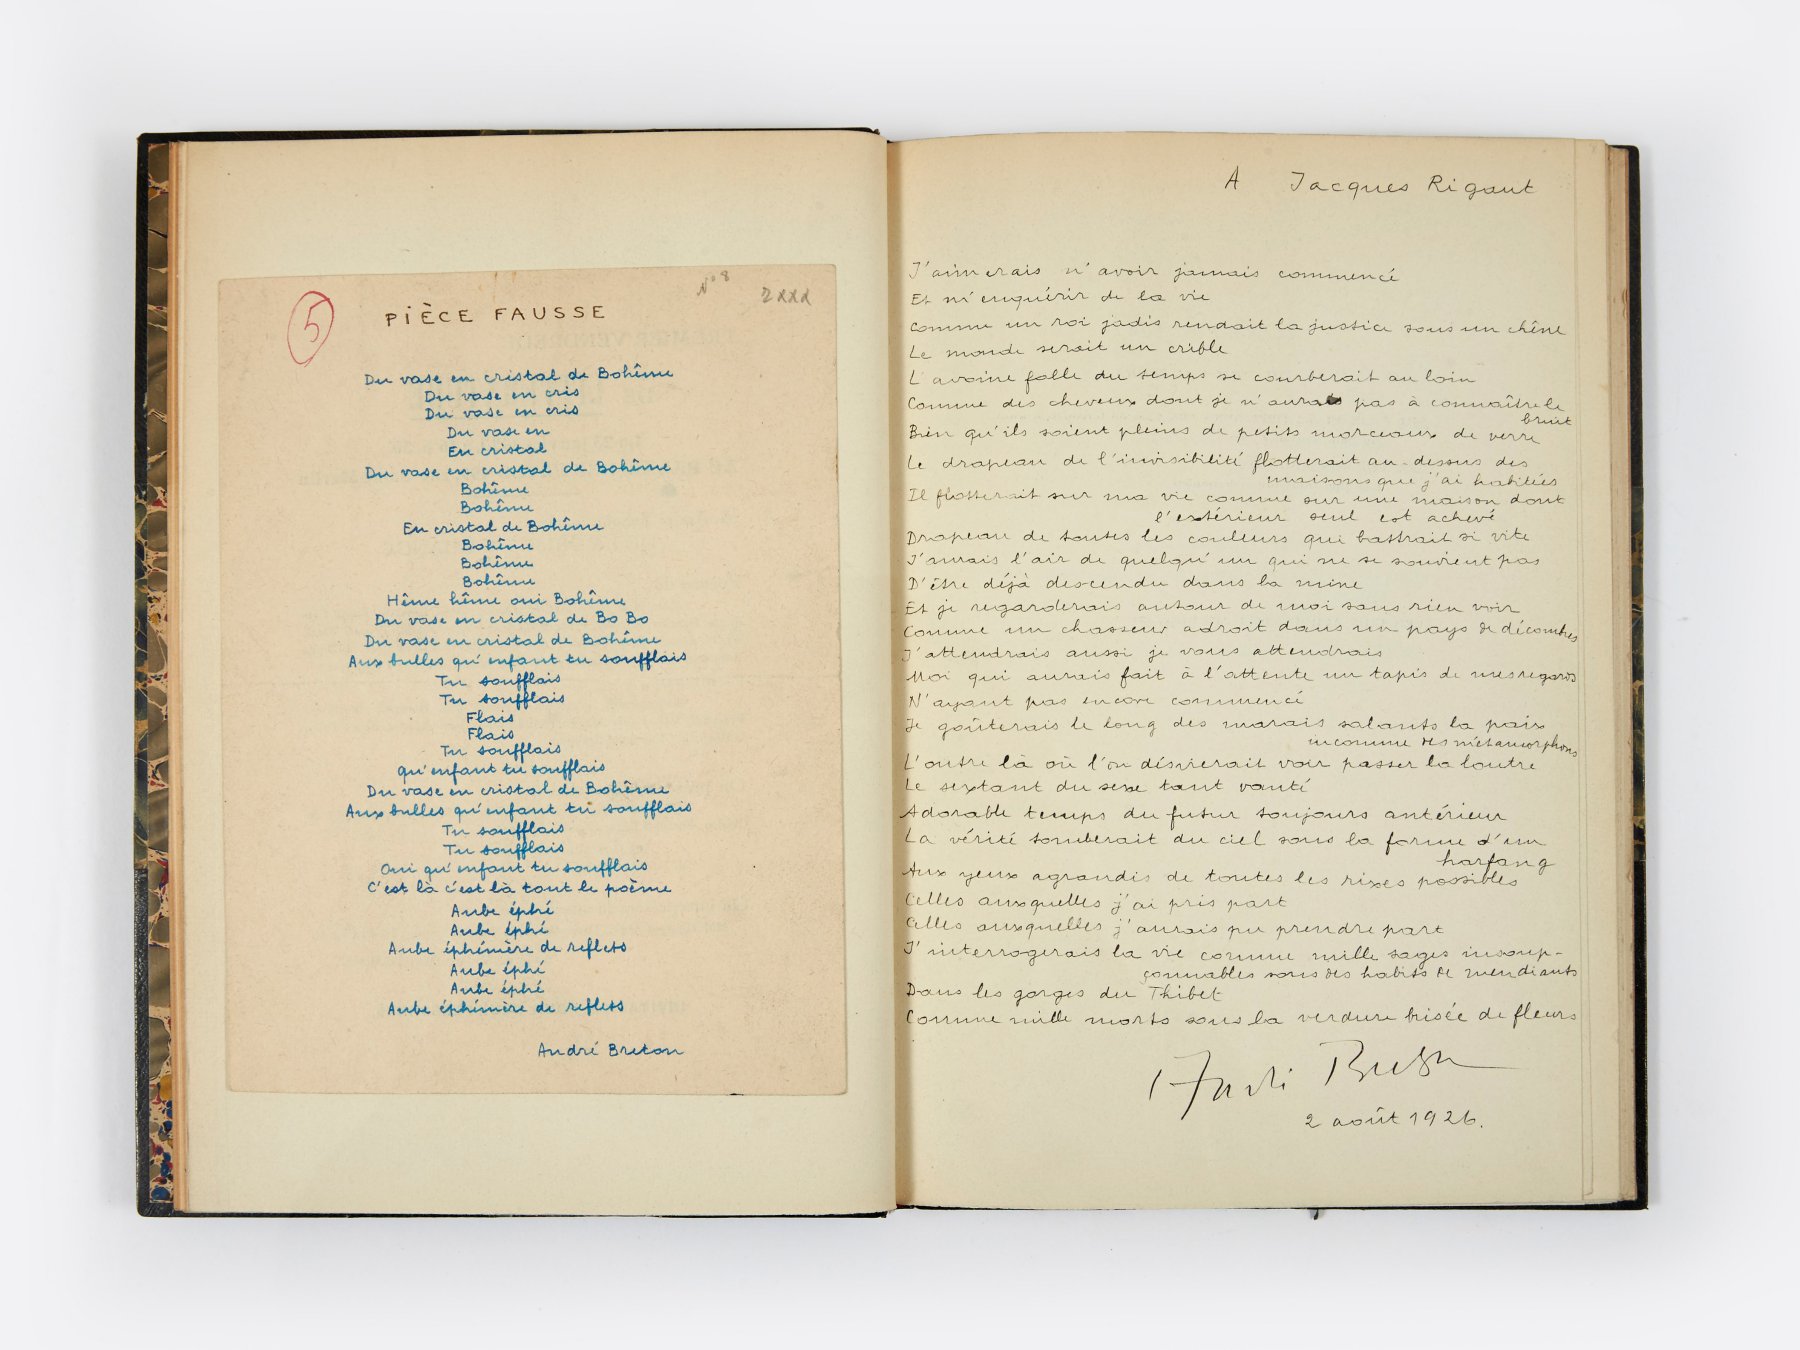 5
N° 8
2xxx
PIÈCE FAUSSE
Du vase en cristal de Bohême
Du vase en cris
Du vase en cris
Du vase en
En cristal
Du vase en cristal de Bohême
Bohême
Bohême
En cristal de Bohême
Bohême
Bohême
Bohême
Hême hême oui Bohême
Du vase en cristal de Bo Bo
Du vase en cristal de Bohême
Aux bulles qu'enfant tu soufflais
Tu soufflais
Tu soufflais
Flais
Flais
Tu soufflais
qu'enfant tu soufflais
Du vase en cristal de Bohême
Aux bulles qu'enfant tu soufflais
Tu soufflais
Tu soufflais
Oui qu'enfant tu soufflais
C'est là c'est là tout le poème
Aube éphé
Aube éphé
Aube éphémère de reflets
Aube éphé
Aube éphé
Aube éphémère de reflets
André Breton
A Jacques Rigaut
J'aimerais n'avoir jamais commencé
Et m'enquérir de la vie
Comme un roi jadis rendait la justice sous un chêne
Le monde serait un crible
L'avoine folle du temps se courberait au loin
Comme des cheveux dont je n'aurais pas à connaître le
bruit
Bien qu'ils soient pleins de petits morceaux de verre
Le drapeau de l'invisibilité flotterait au-dessus des
maisons que j'ai habitées
Il flotterait sur ma vie comme sur une maison dont
l'extérieur seul est achevé
Drapeau de toutes les couleurs qui battrait si vite
J'aurais l'air de quelqu'un qui ne se souvient pas
D'être déjà descendu dans la mine
Et je regarderais autour de moi sans rien voir
Comme un chasseur adroit dans un pays de décombres
J'attendrais aussi je vous attendrais
Moi qui aurais fait à l'attente un tapis de mes regards
N'ayant pas encore commencé
Je goûterais le long des marais salants la paix
inconnue des métamorphoses
L'outre là où l'on désirerait voir passer la loutre
Le sextant du sexe tant vanté
Adorable temps du futur toujours antérieur
La vérité tomberait du ciel sous la forme d'un
harfang
Aux yeux agrandis de toutes les rixes possibles
Celles auxquelles j'ai pris part
Celles auxquelles j'aurais pu prendre part
J'interrogerais la vie comme mille sages insoup-
çonnables sous des habits de mendiants
Dans les gorges du Thibet
Comme mille morts sous la verdure brisée de fleurs
André Breton
2 août 1926.